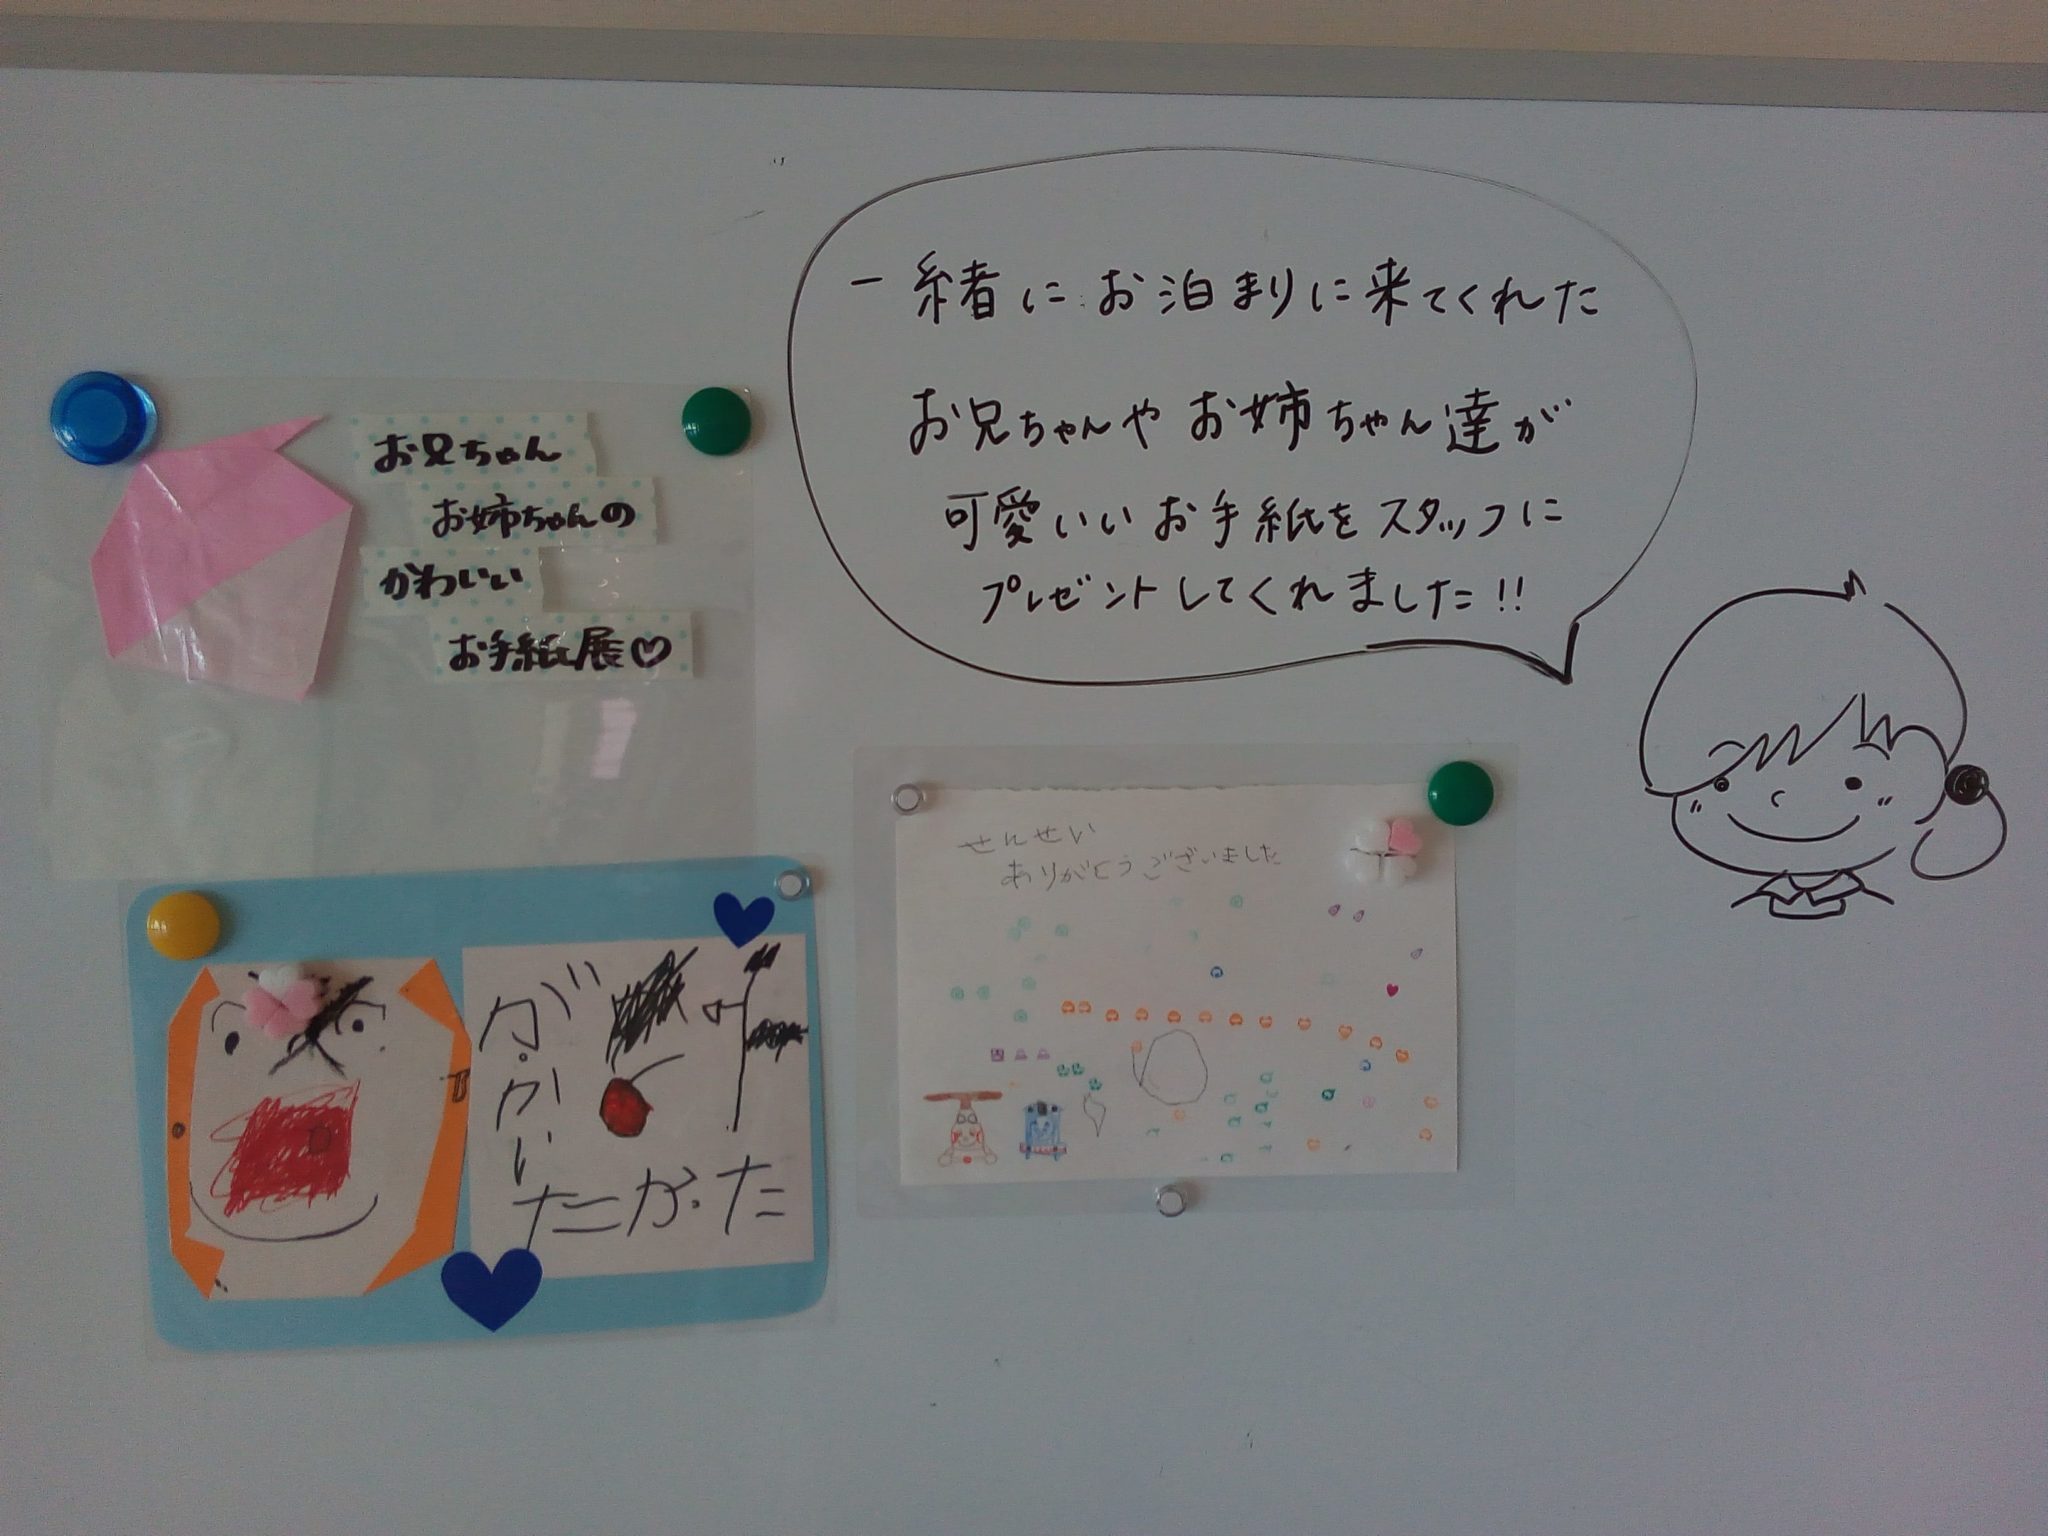 一緒にお泊まりに来てくれた
お兄ちゃんやお姉ちゃん達が
可愛いいお手紙をスタッフに
プレゼントしてくれました!!
お兄ちゃん
お姉ちゃんの
かわいい
お手紙展♡
せんせい
ありがとうございました